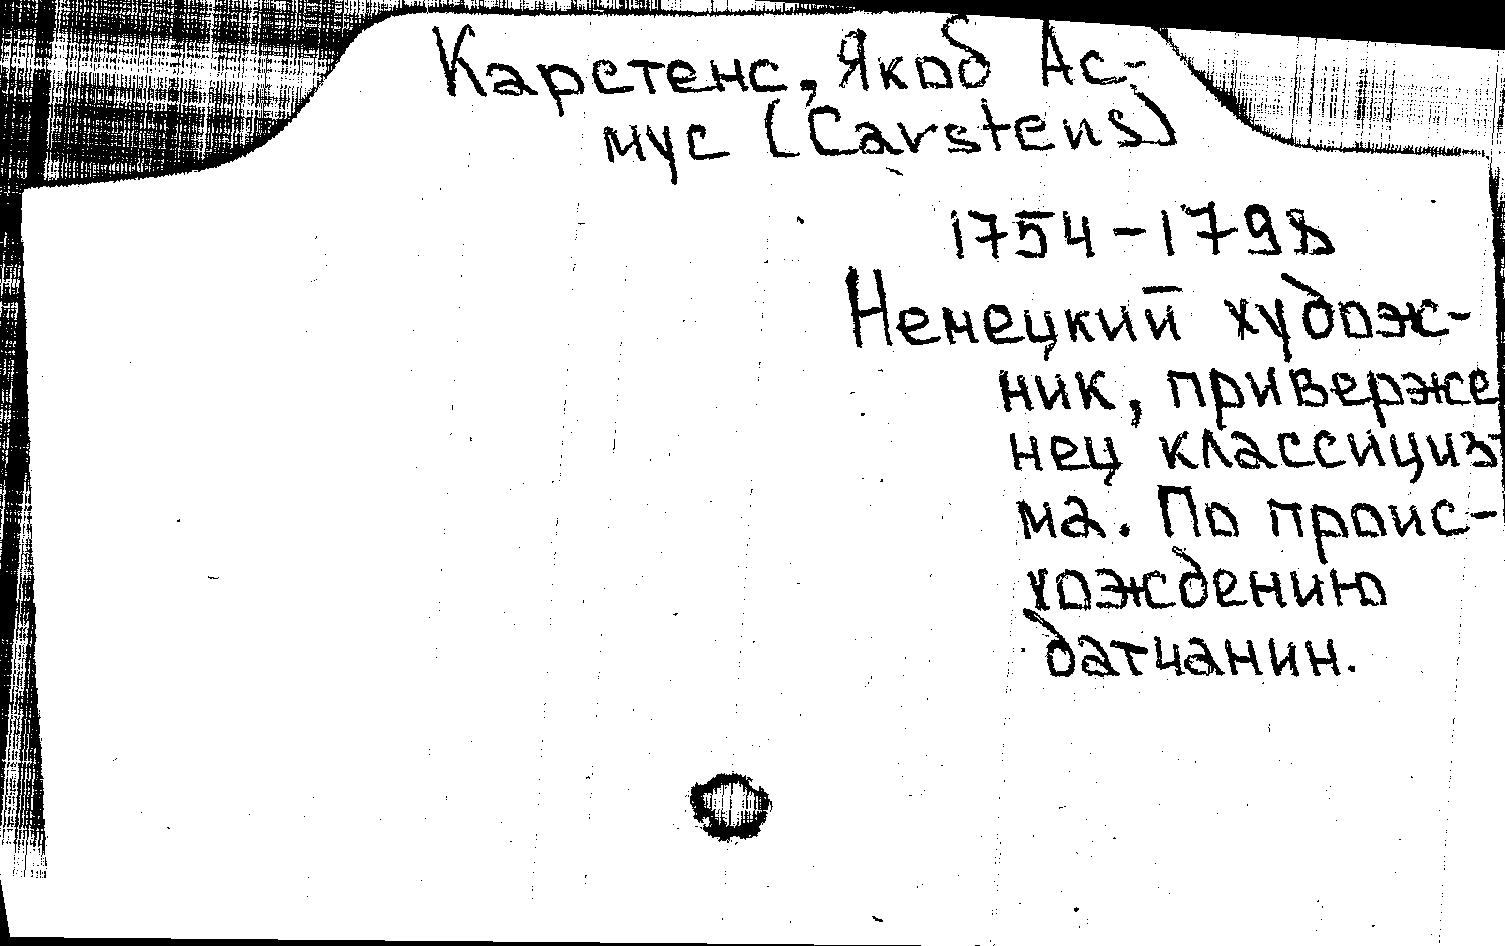 Карстенс, Якоб Ас-
мус (Carstens)
1754-1798
Немецкий худож-
ник, привержe
нец классициз-
ма. По проис-
хождению
датчанин.